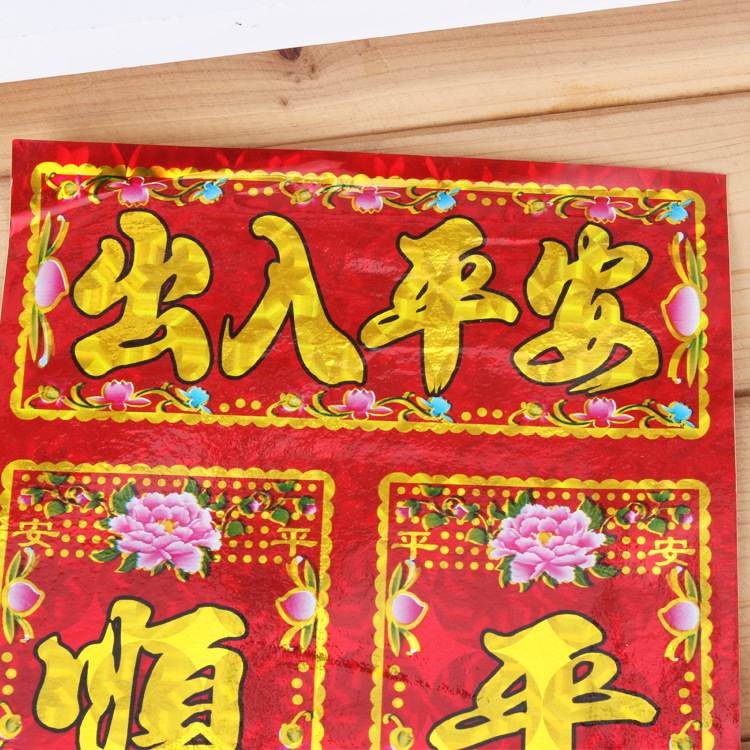 出入平安
安 平
平 安
順
平